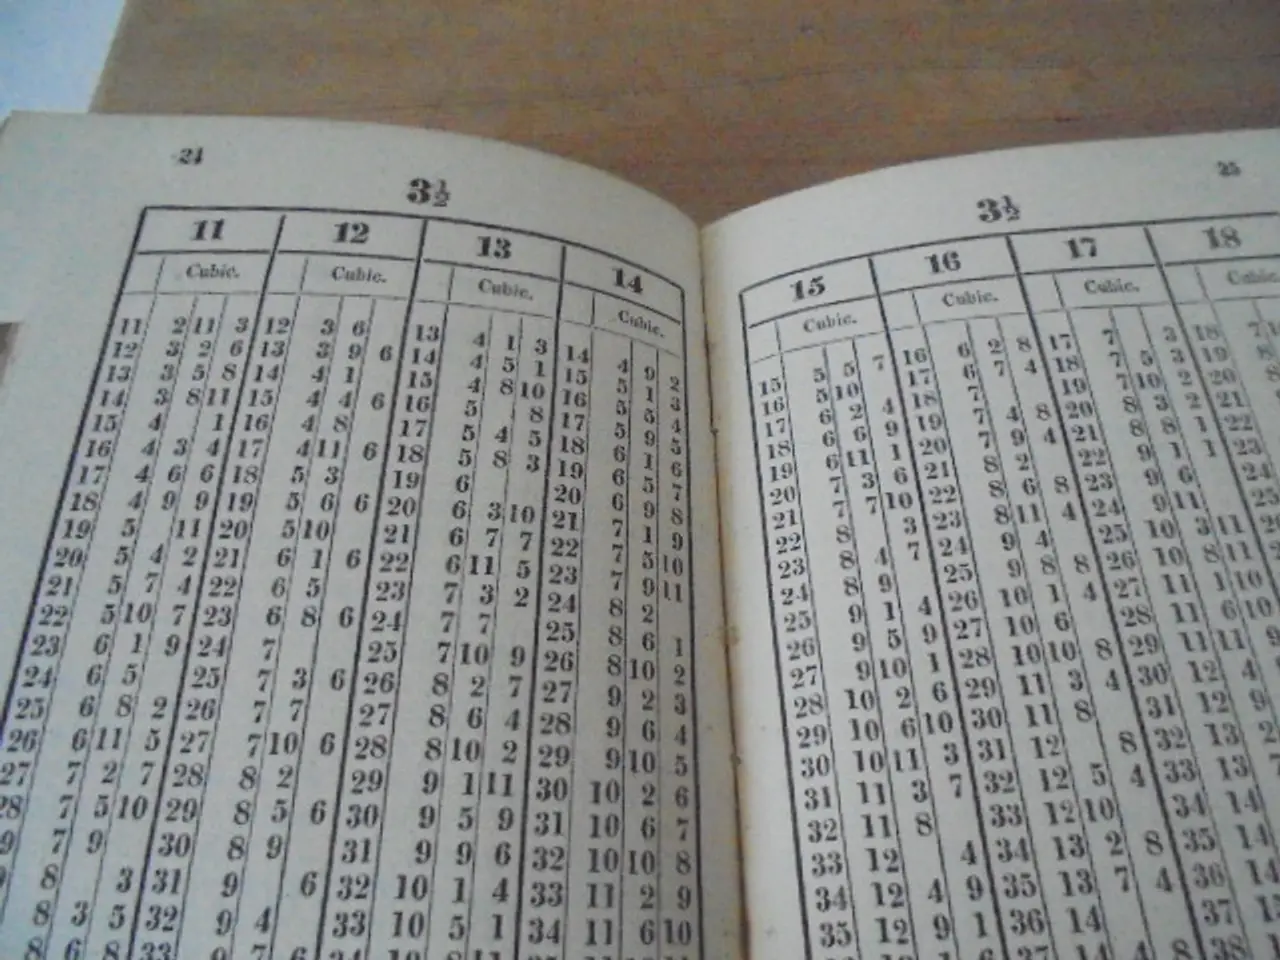 24
3½
11
Cubic.
11 2 11 3
12 3 2 6
13 3 5 8
14 3 8 11
15 4 1
16 4 3 4
17 4 6 6
18 4 9 9
19 5 11
20 5 4 2
21 5 7 4
22 5 10 7
23 6 1 9
24 6 5
25 6 8 2
26 6 11 5
27 7 2 7
28 7 5 10
9 7 9
8 3
8 3 5
8 6 8
12
Cubic.
12 3 6
13 3 9 6
14 4 1
15 4 4 6
16 4 8
17 4 11 6
18 5 3
19 5 6 6
20 5 10
21 6 1 6
22 6 5
23 6 8 6
24 7
25 7 3 6
26 7 7
27 7 10 6
28 8 2
29 8 5 6
30 8 9
31 9 6
32 9 4
33 9 7 6
13
Cubic.
13 4 1 3
14 4 5 1
15 4 8 10
16 5 8
17 5 4 5
18 5 8 3
19 6
20 6 3 10
21 6 7 7
22 6 11 5
23 7 3 2
24 7 7
25 7 10 9
26 8 2 7
27 8 6 4
28 8 10 2
29 9 1 11
30 9 5 9
31 9 9 6
32 10 1 4
33 10 5 1
34 10 8 11
14
Cubic.
14 4 9 2
15 5 1 3
16 5 5 4
17 5 9 5
18 6 1 6
19 6 5 7
20 6 9 8
21 7 1 9
22 7 5 10
23 7 9 11
24 8 2
25 8 6 1
26 8 10 2
27 9 2 3
28 9 6 4
29 9 10 5
30 10 2 6
31 10 6 7
32 10 10 8
33 11 2 9
34 11 6 10
25
3½
15
Cubic.
15 5 5 7
16 5 10
17 6 2 4
18 6 6 9
19 6 11 1
20 7 3 6
21 7 7 10
22 8 3
23 8 4 7
24 8 9
25 9 1 4
26 9 5 9
27 9 10 1
28 10 2 6
29 10 6 10
30 10 11 3
31 11 3 7
32 11 8
33 12 4
34 12 4 9
35 12 9 1
16
Cubic.
16 6 2 8
17 6 7 4
18 7
19 7 4 8
20 7 9 4
21 8 2
22 8 6 8
23 8 11 4
24 9 4
25 9 8 8
26 10 1 4
27 10 6
28 10 10 8
29 11 3 4
30 11 8
31 12 8
32 12 5 4
33 12 10
34 13 2 8
35 13 7 4
36 14
37 14 4 8
17
Cubic.
17 7 3
18 7 5 3
19 7 10 2
20 8 3 2
21 8 8 1
22 9 1 1
23 9 6
24 9 11
25 10 3 11
26 10 8 11
27 11 1 10
28 11 6 10
29 11 11 9
30 12 4
31 12 9
32 13 2
33 13 7
34 14
35 14
36 14
37
38
18
Cubic.
18 7 10
19 8
20 8
21
22
23
24
25